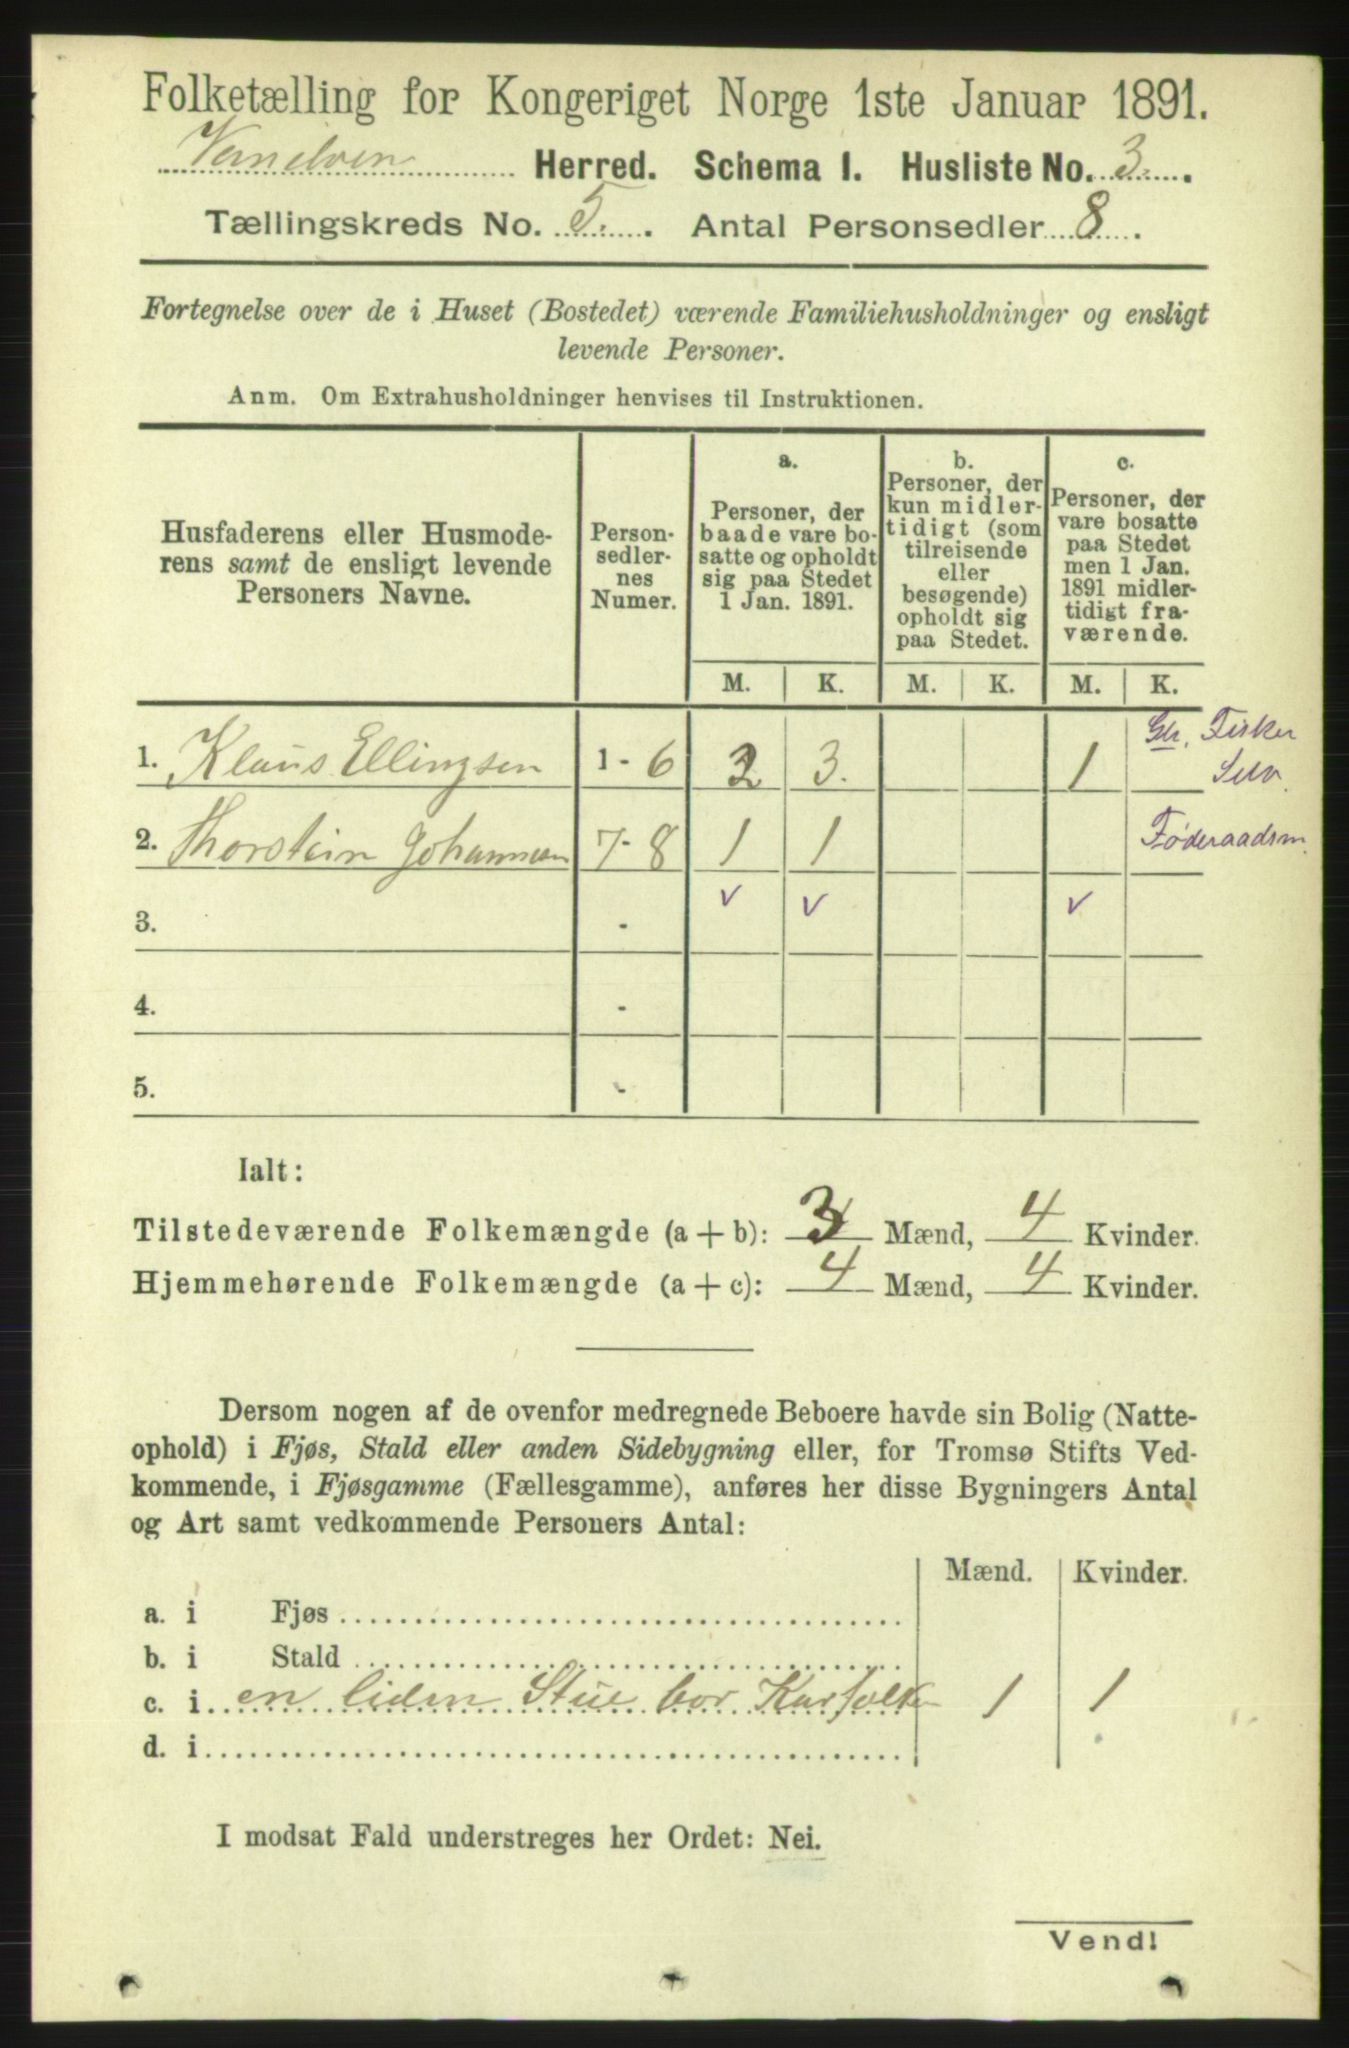 Folketælling for Kongeriget Norge 1ste Januar 1891.
Vanelven Herred. Schema I. Husliste No. 3.
Tællingskreds No. 5. Antal Personsedler 8.
Fortegnelse over de i Huset (Bostedet) værende Familiehusholdninger og ensligt
levende Personer.
Anm. Om Extrahusholdninger henvises til Instruktionen.
Husfaderens eller Husmode-
rens samt de ensligt levende
Personers Navne.
Person-
sedler-
nes
Numer.
a.
Personer, der
baade vare bo-
satte og opholdt
sig paa Stedet
1 Jan. 1891.
b.
Personer, der
kun midler-
tidigt (som
tilreisende
eller
besøgende)
opholdt sig
paa Stedet.
c.
Personer, der
vare bosatte
paa Stedet
men 1 Jan.
1891 midler-
tidigt fra-
værende.
M. K. M. K. M. K.
1. Klaus Ellingsen 1 - 6 2 3. 1 Gbr. Fisker
Selv.
2. Thorstein Johannesen 7 - 8 1 1 Føderaadsm.
v v v
3. -
4. -
5. -
Ialt:
Tilstedeværende Folkemængde (a + b): 3 Mænd, 4 Kvinder.
Hjemmehørende Folkemængde (a + c): 4 Mænd, 4 Kvinder.
Dersom nogen af de ovenfor medregnede Beboere havde sin Bolig (Natte-
ophold) i Fjøs, Stald eller anden Sidebygning eller, for Tromsø Stifts Ved-
kommende, i Fjøsgamme (Fællesgamme), anføres her disse Bygningers Antal
og Art samt vedkommende Personers Antal:
Mænd. Kvinder.
a. i Fjøs
b. i Stald
c. i en liden Stue bor Kaarfolk 1 1
d. i
I modsat Fald understreges her Ordet: Nei.
Vend!